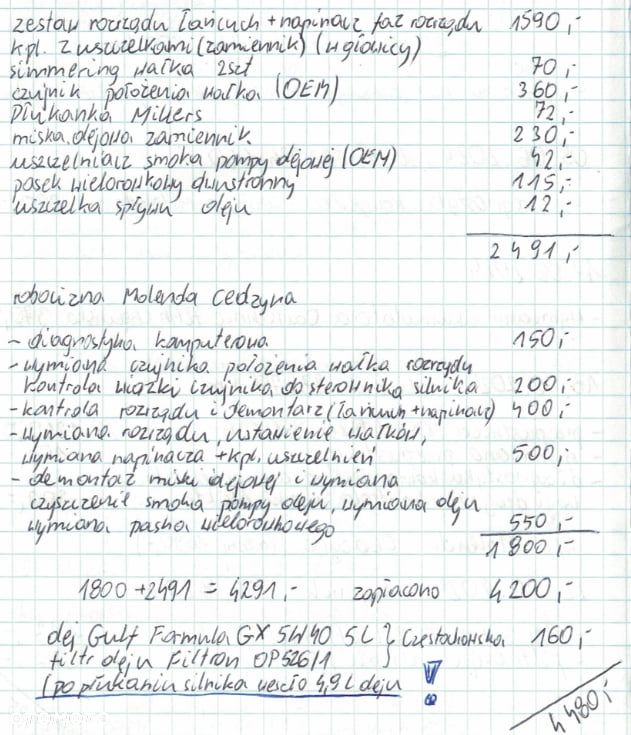 zestaw rozrządu łańcuch + napinacz faz rozrządu 1590,-
kpl. z uszczelkami (zamiennik) (w głowicy)
simmering wałka 2szt 70,-
czujnik położenia wałka (OEM) 360,-
Płukanka Millers 72,-
miska olejowa zamiennik 230,-
uszczelniacz smoka pompy olejowej (OEM) 42,-
pasek wielorowkowy dwustronny 115,-
uszczelka spływu oleju 12,-
2491,-
robocizna Molenda Cedzyna
- diagnostyka komputerowa 150,-
- wymiana czujnika położenia wałka rozrządu
kontrola wiązki czujnika do sterownika silnika 200,-
- kontrola rozrządu i demontarz (łańcuch + napinacz) 400,-
- wymiana rozrządu, ustawienie wałków,
wymiana napinacza + kpl. uszczelnień 500,-
- demontaż miski olejowej i wymiana
czyszczenie smoka pompy oleju, wymiana oleju
wymiana paska wielorowkowego 550,-
1800,-
1800 + 2491 = 4291,- zapłacono 4200,-
olej Gulf Formula GX 5W40 5L } Częstochowska 160,-
filtr oleju Filtron OP526/1
(po płukaniu silnika weszło 4,9 L oleju !!
4480,-